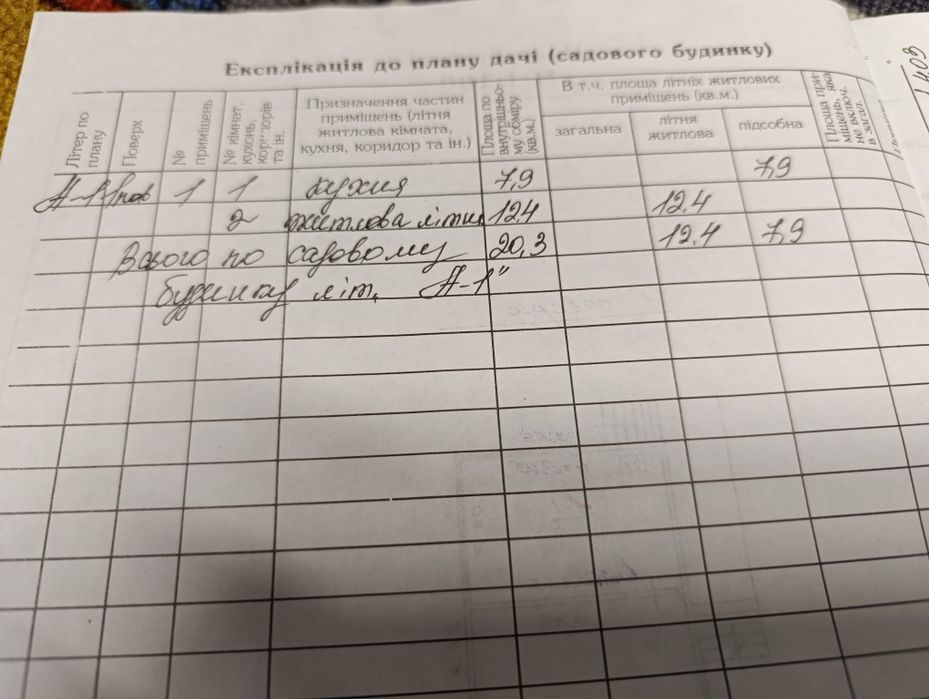 Експлікація до плану дачі (садового будинку)
Літер по плану
Поверх
№ приміщень
№ кімнат, кухонь, коридорів та ін.
Призначення частин приміщень (літня житлова кімната, кухня, коридор та ін.)
Площа по внутрішньому обміру (кв.м.)
В т.ч. площа літніх житлових приміщень (кв.м.)
загальна
літня житлова
підсобна
Площа приміщень, яка не включ. в загал.
А-1 1пов 1 1 кухня 7,9 7,9
2 житлова літня 12,4 12.4
Всього по садовому 20,3 12.4 7,9
будинку літ. А-1"
1.09